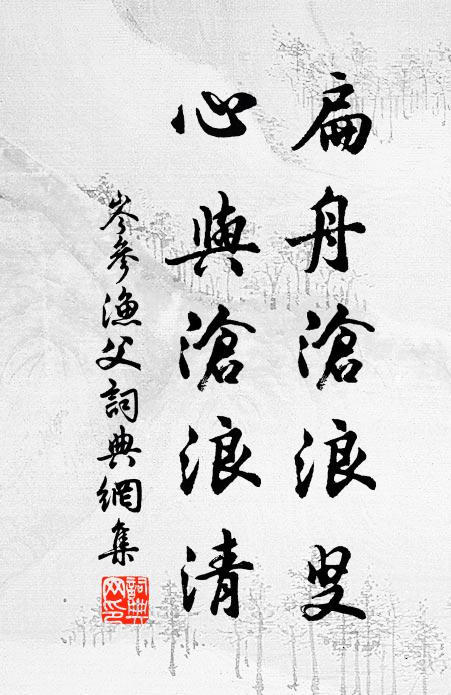 扁舟滄浪叟
心與滄浪清
岑參漁父詞典網集